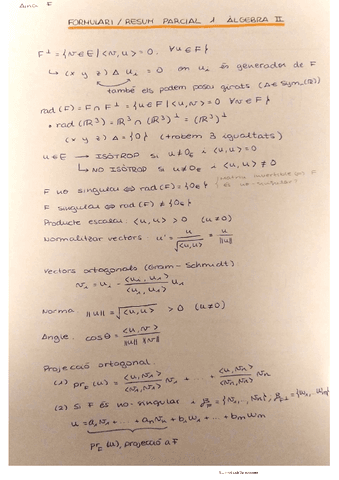 FORMULARI / RESUM PARCIAL 1 ÀLGEBRA II
F⊥ = {v∈E / <v,u> = 0. ∀u∈F}
↳ (x y z) Δ u₁ = 0 on u₁ és generador de F
també els podem posar girats (Δ∈Sym₂(ℝ))
rad (F) = F ∩ F⊥ = {u∈F / <u,v> = 0 ∀v∈F}
• rad (ℝ³) = ℝ³ ∩ (ℝ³)⊥ = (ℝ³)⊥
(x y z) Δ = {0} (trobem 3 igualtats)
u∈E → ISÒTROP si u≠0E i <u,u> = 0
↳ NO ISÒTROP si u≠0E i <u,u> ≠ 0
F no singular ⇔ rad(F) = {0E}
F singular ⇔ rad (F) ≠ {0E}
Producte escalar <u,u> > 0 (u≠0)
Normalitzar vectors u' = u/√<u,u> = u/||u||
Vectors ortogonals (Gram-Schmidt)
Norma ||u|| = √<u,u> > 0 (u≠0)
Angle cosθ = <u,v>/||u|| ||v||
Projecció ortogonal
(1) prE (u) = <u,v₁>/<v₁,v₁> v₁ + ... + <u,vn>/<vn,vn> vn
(2) Si F és no-singular
u = a₁v₁ + ... + anvn + b₁w₁ + ... + bmwm
prE (u), projecció a F